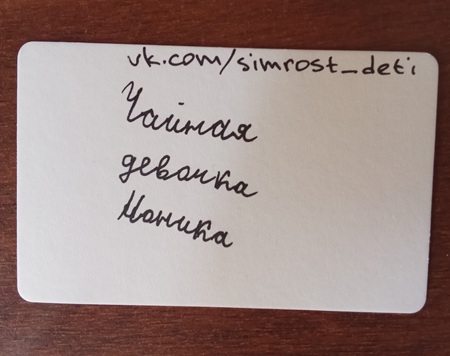 vk.com/simrost_deti
Чайная
девочка
Моника